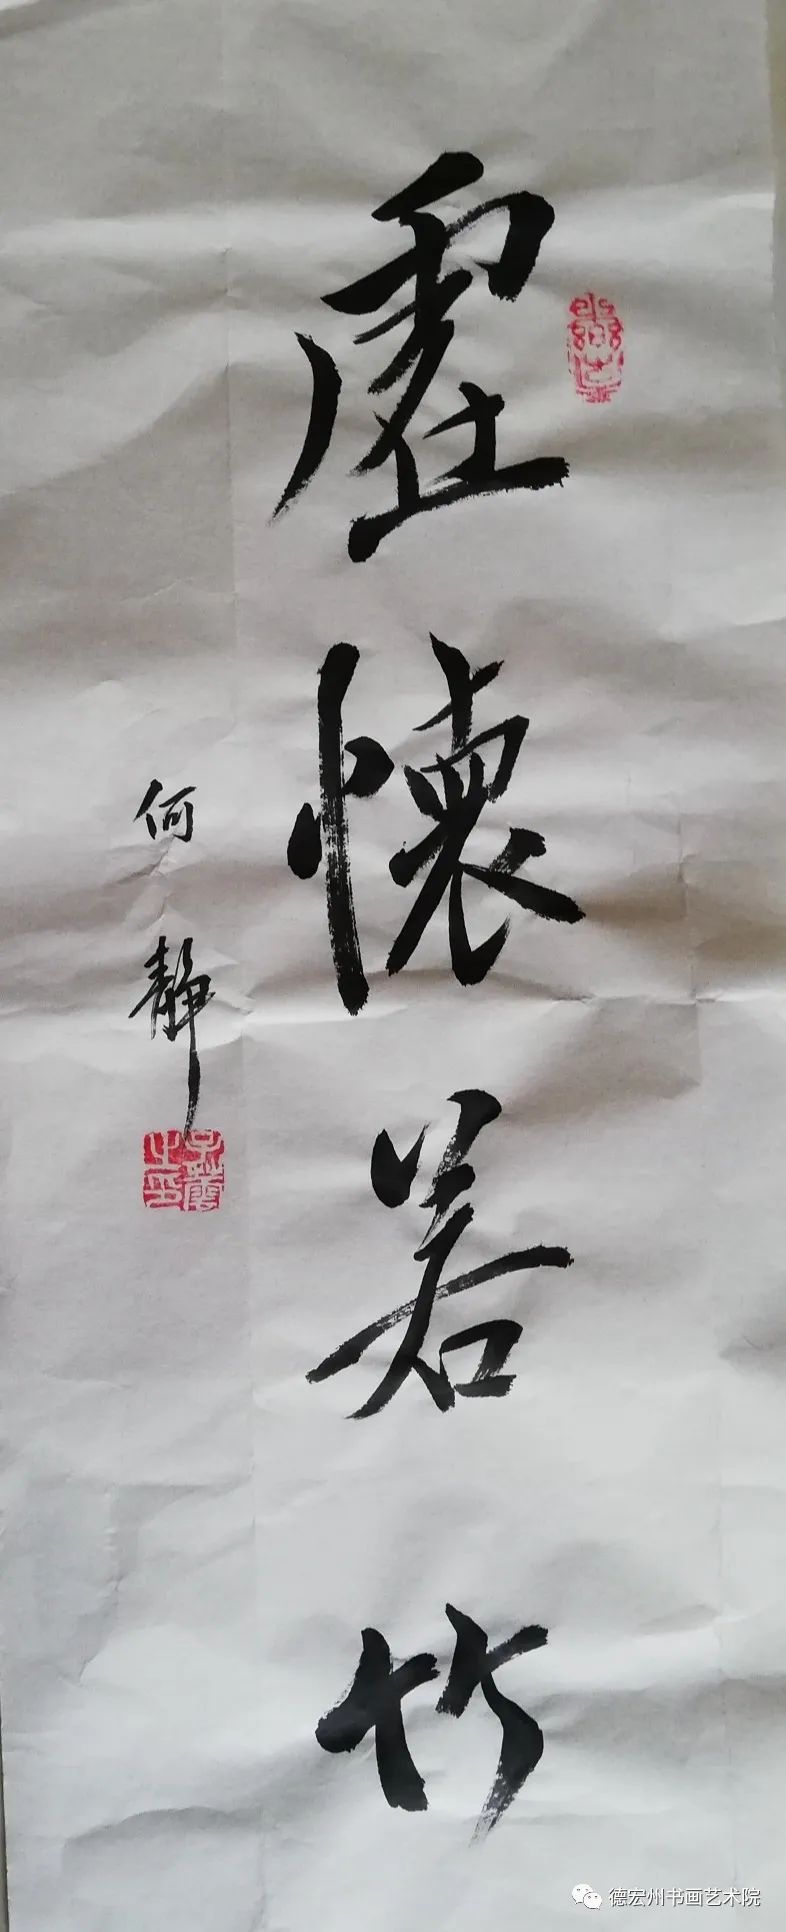 虚懷若竹
何靜
德宏州书画艺术院